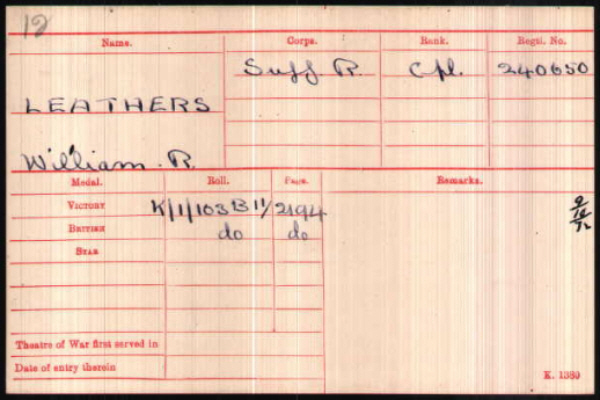 12
Name. Corps. Rank. Regtl. No.
Suff. R. Cpl. 240650
LEATHERS
William. R.
Medal. Roll. Page. Remarks.
VICTORY K/1/103 B 11/ 2194
BRITISH do do
STAR
Theatre of War first served in
Date of entry therein
K. 1380